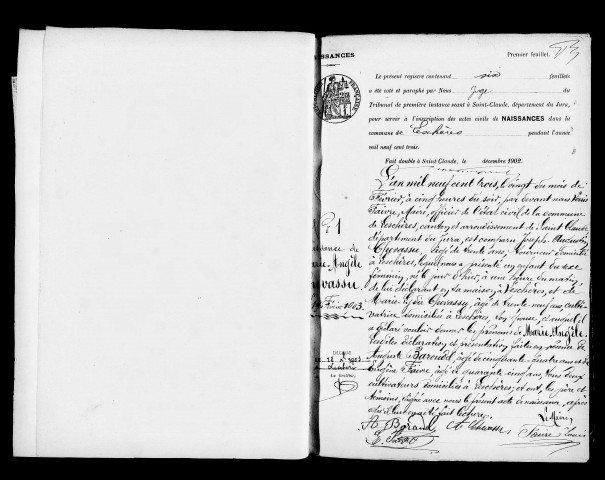 NAISSANCES
Premier feuillet.
Le présent registre contenant six feuillets
a été coté et paraphé par Nous Juge du
Tribunal de première instance séant à Saint-Claude, département du Jura,
pour servir à l'inscription des actes civils de NAISSANCES dans la
commune de Leschères pendant l'année
mil neuf cent trois.
Fait double à Saint-Claude, le décembre 1902.
L'an mil neuf cent trois, le vingt du mois de
Février, à cinq heures du soir, par devant nous Louis
Faivre, Maire, officier de l'état civil de la commune
de Leschères, canton et arrondissement de Saint Claude,
département du Jura, est comparu Joseph
âgé de trente ans, domicilié
à Leschères, lequel nous a présenté un enfant du sexe
féminin, né le jour d'hier, à une heure du matin,
de lui déclarant en sa maison à Leschères, et de
Marie âgée de trente neuf ans, culti-
vatrice domiciliée à Leschères, son épouse, et auquel il
a déclaré vouloir donner les prénoms de Marie Angèle.
déclaration et présentation faites en présence
Auguste âgé de cinquante quatre ans et de
Eugène Faivre, âgé de quarante cinq ans, tous deux
cultivateurs domiciliés à Leschères; et ont, les père et
témoins, signé avec nous le présent acte de naissance, après
fait lecture.
Le Maire,
Faivre Louis
N° 1
Naissance de
Marie Angèle
DÉCÉDÉ
Le Greffier,